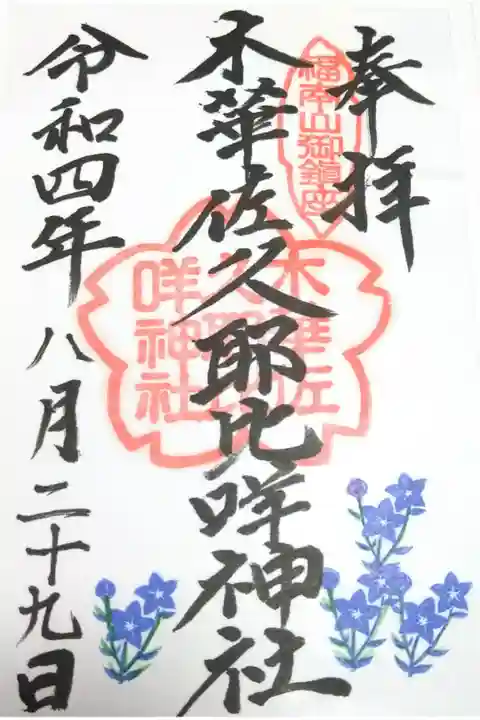 奉拝
福南山御鎮座
木華佐久耶比咩神社
木華佐
久耶比
咩神社
令和四年八月二十九日